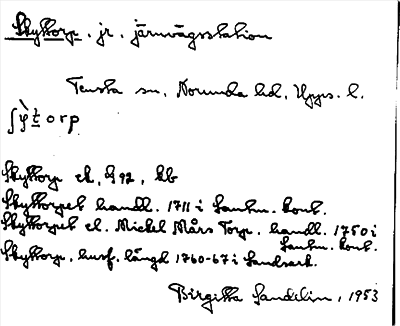 Skyttorp, jr. järnvägsstation
Tensta sn, Norunda hd, Upps. l.
Skyttorp ek, G 92, kb
Skyttorpet handl. 1711 i Lantm. kont.
Skyttorpet el. Mickel Mårs Torp, handl. 1750 i
Lantm. kont.
Skyttorp, husf. längd 1760-67 i Landsark.
Birgitta Sandelin, 1953